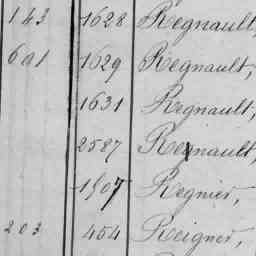 143 1628 Regnault,
601 1629 Regnault,
1631 Regnault,
2587 Regnault,
1507 Regnier,
203 454 Reigner,